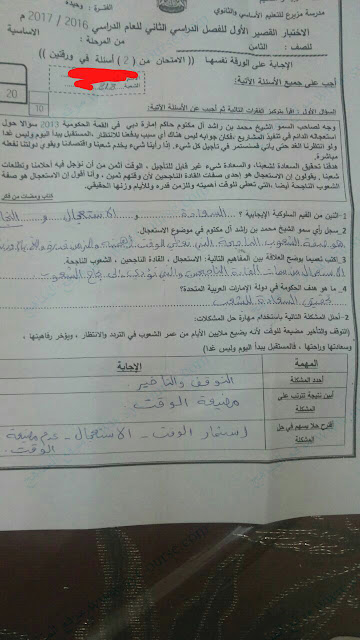 مدرسة مزيرع للتعليم الأساسي والثانوي
الفترة : وحيدة
الاختبار القصير الأول للفصل الدراسي الثاني للعام الدراسي 2016 / 2017 م
للصف: الثامن
من المرحلة :
الأساسية
الإجابة على الورقة نفسها (( الامتحان من (2) أسئلة في ورقتين ))
أجب على جميع الأسئلة الآتية:
20
10
السؤال الأول : اقرأ بتركيز الفقرات التالية ثم أجب عن الأسئلة الآتية:
وجه لصاحب السمو الشيخ محمد بن راشد آل مكتوم حاكم إمارة دبي في القمة الحكومية 2013 سؤالا حول
استعجاله الدائم في تنفيذ المشاريع ،فكان جوابه ليس هناك أي سبب يدفعنا للانتظار ،المستقبل يبدأ اليوم وليس غدا
ولو انتظرنا الغد حتى يأتي فسنستمر في تأجيل كل شيء. إذا رأينا شيء يخدم شعبنا واقتصادنا ويقوي دولتنا نفعله
مباشرة.
هدفنا تحقيق السعادة لشعبنا، والسعادة شيء غير قابل للتأجيل ، الوقت أثمن من أن نؤجل فيه أحلامنا وتطلعات
شعبنا , يقولون إن الاستعجال هو إحدى صفات القادة الناجحين لأن وقتهم ثمين ، وأنا أقول إن الاستعجال هو صفة
الشعوب الناجحة أيضا ،التي تعطي للوقت أهميته وللزمن قدره وللأيام وزنها الحقيقي.
كتاب ومضات من فكر
1- اثنتين من القيم السلوكية الإيجابية ؟ السعادة و الاستعجال
2- سجل رأي سمو الشيخ محمد بن راشد آل مكتوم في موضوع الاستعجال.
هو صفة الشعوب الناجحة التي تعطي للوقت أهميته وللزمن قدره
3- اكتب نصيا يوضح العلاقة بين المفاهيم التالية: الاستعجال ، القادة الناجحين ، الشعوب الناجحة.
الاستعجال من صفات القادة الناجحين
4- ما هو هدف الحكومة في دولة الإمارات العربية المتحدة؟
تحقيق السعادة للشعب
2- أحلل المشكلة التالية باستخدام مهارة حل المشكلات:
(التوقف والتأخير مضيعة للوقت لأنه يضيع ملايين الأيام من عمر الشعوب في التردد والانتظار ، ويؤخر رفاهيتها ،
وسعادتها وراحتها ، فالمستقبل يبدأ اليوم وليس غدا)
المهمة الإجابة
أحدد المشكلة التوقف والتأخير
أبين نتيجة تترتب على المشكلة مضيعة الوقت
أقترح حلا يسهم في حل المشكلة استثمار الوقت - الاستعجال - عدم مضيعة الوقت